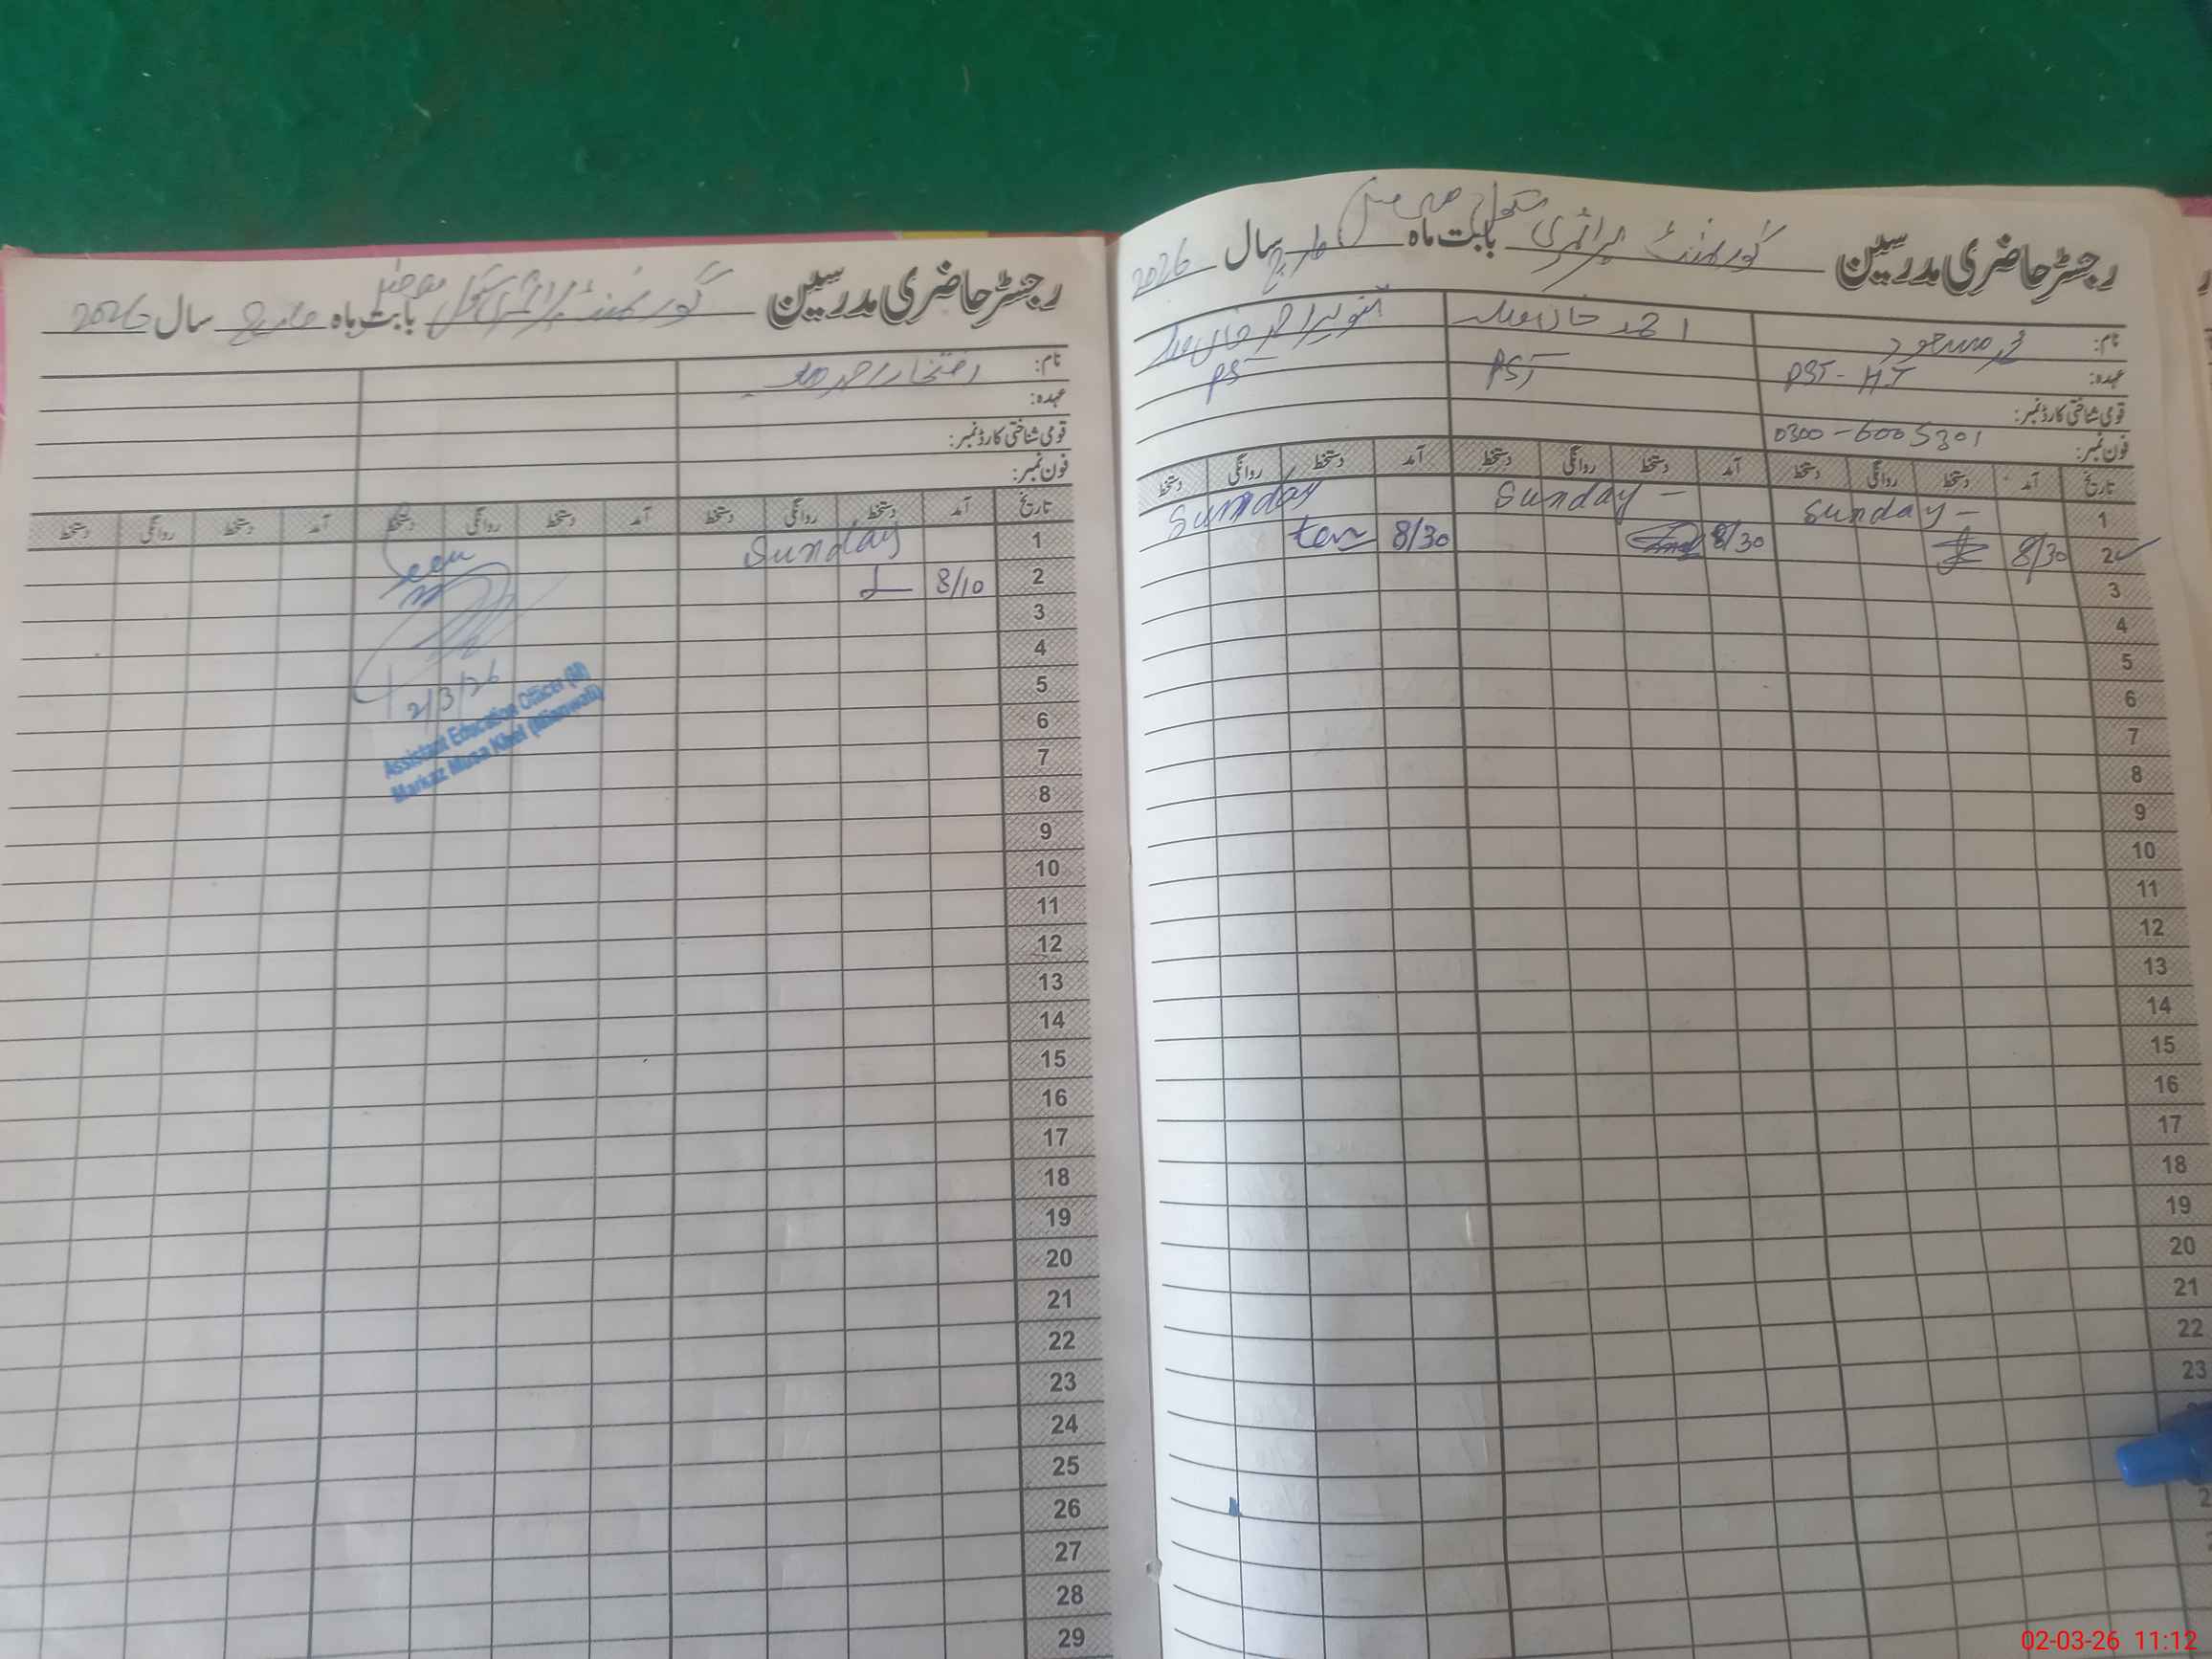 رجسٹر حاضری مدرسین گورنمنٹ پرائمری سکول بابت ماہ مارچ سال 2026
نام: محمد مسعود احمد خان تنویر احمد خان
عہدہ: PST - H.T PST PST
قومی شناختی کارڈ نمبر:
فون نمبر: 0300-6005301
تاریخ آمد دستخط روانگی دستخط آمد دستخط روانگی دستخط آمد دستخط روانگی دستخط
1 Sunday - Sunday - Sunday
2 8/30 8/30 8/30
3
4
5
6
7
8
9
10
11
12
13
14
15
16
17
18
19
20
21
22
23
رجسٹر حاضری مدرسین گورنمنٹ پرائمری سکول بابت ماہ مارچ سال 2026
نام: افتخار احمد
عہدہ:
قومی شناختی کارڈ نمبر:
فون نمبر:
تاریخ آمد دستخط روانگی دستخط آمد دستخط روانگی دستخط آمد دستخط روانگی دستخط
1 Sunday
2 8/10
3
4
5
6
7
8
9
10
11
12
13
14
15
16
17
18
19
20
21
22
23
24
25
26
27
28
29
Seen
2/3/26
Assistant Education Officer (M)
Markaz Musa Khel (Mianwali)
02-03-26 11:12